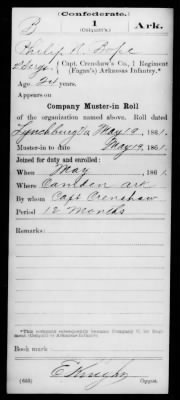 (Confederate.)
B 1 Ark.
(Colquitt's.)
Philip R. Pope
2 Sergt, Capt. Crenshaw's Co., 1 Regiment
(Fagan's) Arkansas Infantry.*
Age 24 years.
Appears on
Company Muster-in Roll
of the organization named above. Roll dated
Lynchburg Va May 19, 1861.
Muster-in to date May 19, 1861.
Joined for duty and enrolled:
When May, 1861.
Where Camden Ark
By whom Capt Crenshaw
Period 12 Months
Remarks:
*This company subsequently became Company
Book mark:
(635) Copyist.